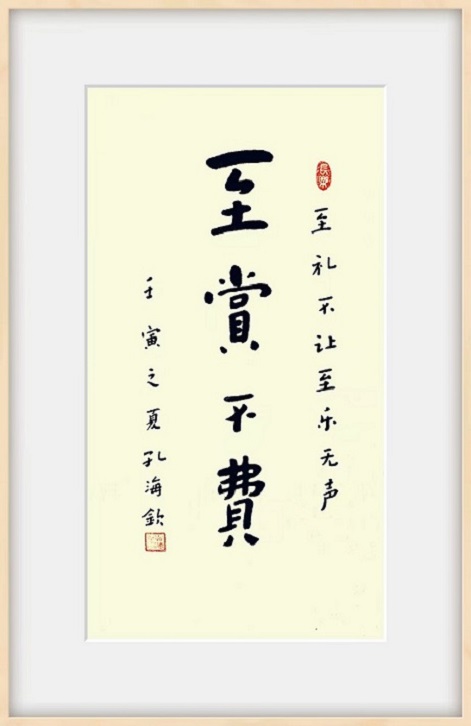 至礼不让至乐无声
至赏不费
壬寅之夏孔海钦